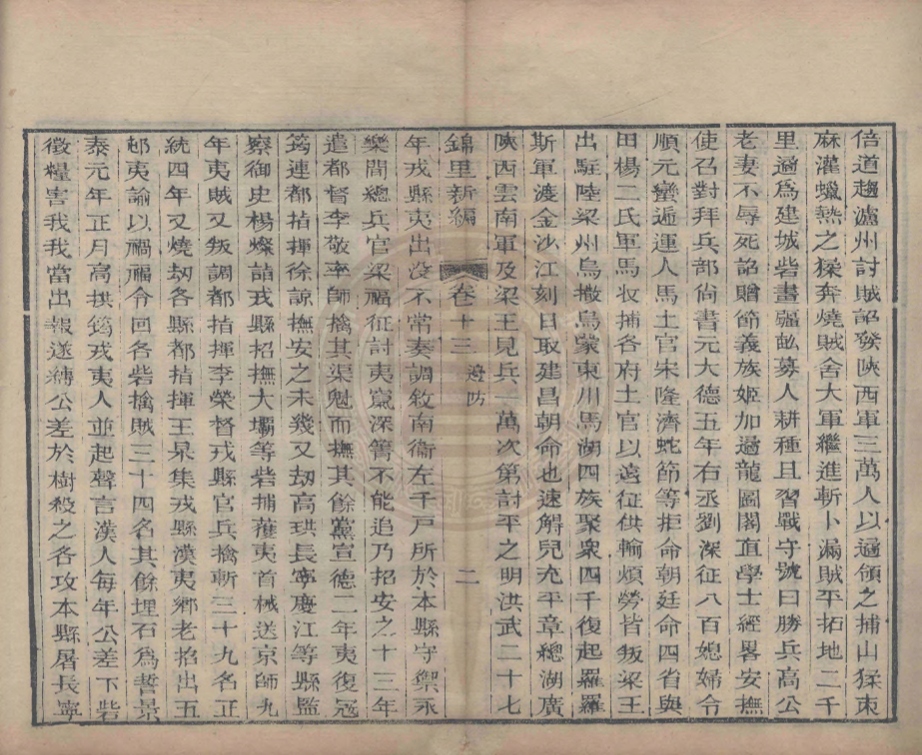 倍道趨瀘州討賊詔發陝西軍三萬人以遹領之捕山猱束
麻灌蠟熱之猱奔燒賊舍大軍繼進斬卜漏賊平拓地二千
里遹爲建城砦畫疆畝募人耕種且習戰守號曰勝兵高公
老妻不辱死詔贈節義族姬加遹龍圖閣直學士經畧安撫
使召對拜兵部尚書元大德五年右丞劉深征八百媳婦令
順元蠻遞運人馬土官宋隆濟蛇節等拒命朝廷命四省與
田楊二氏軍馬收捕各府土官以遠征供輸煩勞皆叛梁王
出駐陸梁州烏撒烏蒙東川馬湖四族聚衆四千復起羅羅
斯軍渡金沙江刻日取建昌朝命也速觧兒充平章總湖廣
陝西雲南軍及梁王見兵一萬次第討平之明洪武二十七
錦里新編 卷十三 邊防 二
年戎縣夷出没不常奏調敘南衞左千戸所於本縣守禦永
樂間總兵官梁福征討夷竄深箐不能追乃招安之十三年
遣都督李敬率師擒其渠魁而撫其餘黨宣德二年夷復寇
筠連都指揮徐諒撫安之未幾又刼高珙長寧慶江等縣監
察御史楊燦詣戎縣招撫大壩等砦捕獲夷首械送京師九
年夷賊又叛調都指揮李榮督戎縣官兵擒斬三十九名正
統四年又燒刼各縣都指揮王杲集戎縣漢夷鄉老招出五
邨夷諭以禍福令回各砦擒賊三十四名其餘埋石爲誓景
泰元年正月高拱筠戎夷人並起聲言漢人每年公差下砦
徵糧害我我當出報遂縛公差於樹殺之各攻本縣屠長寧